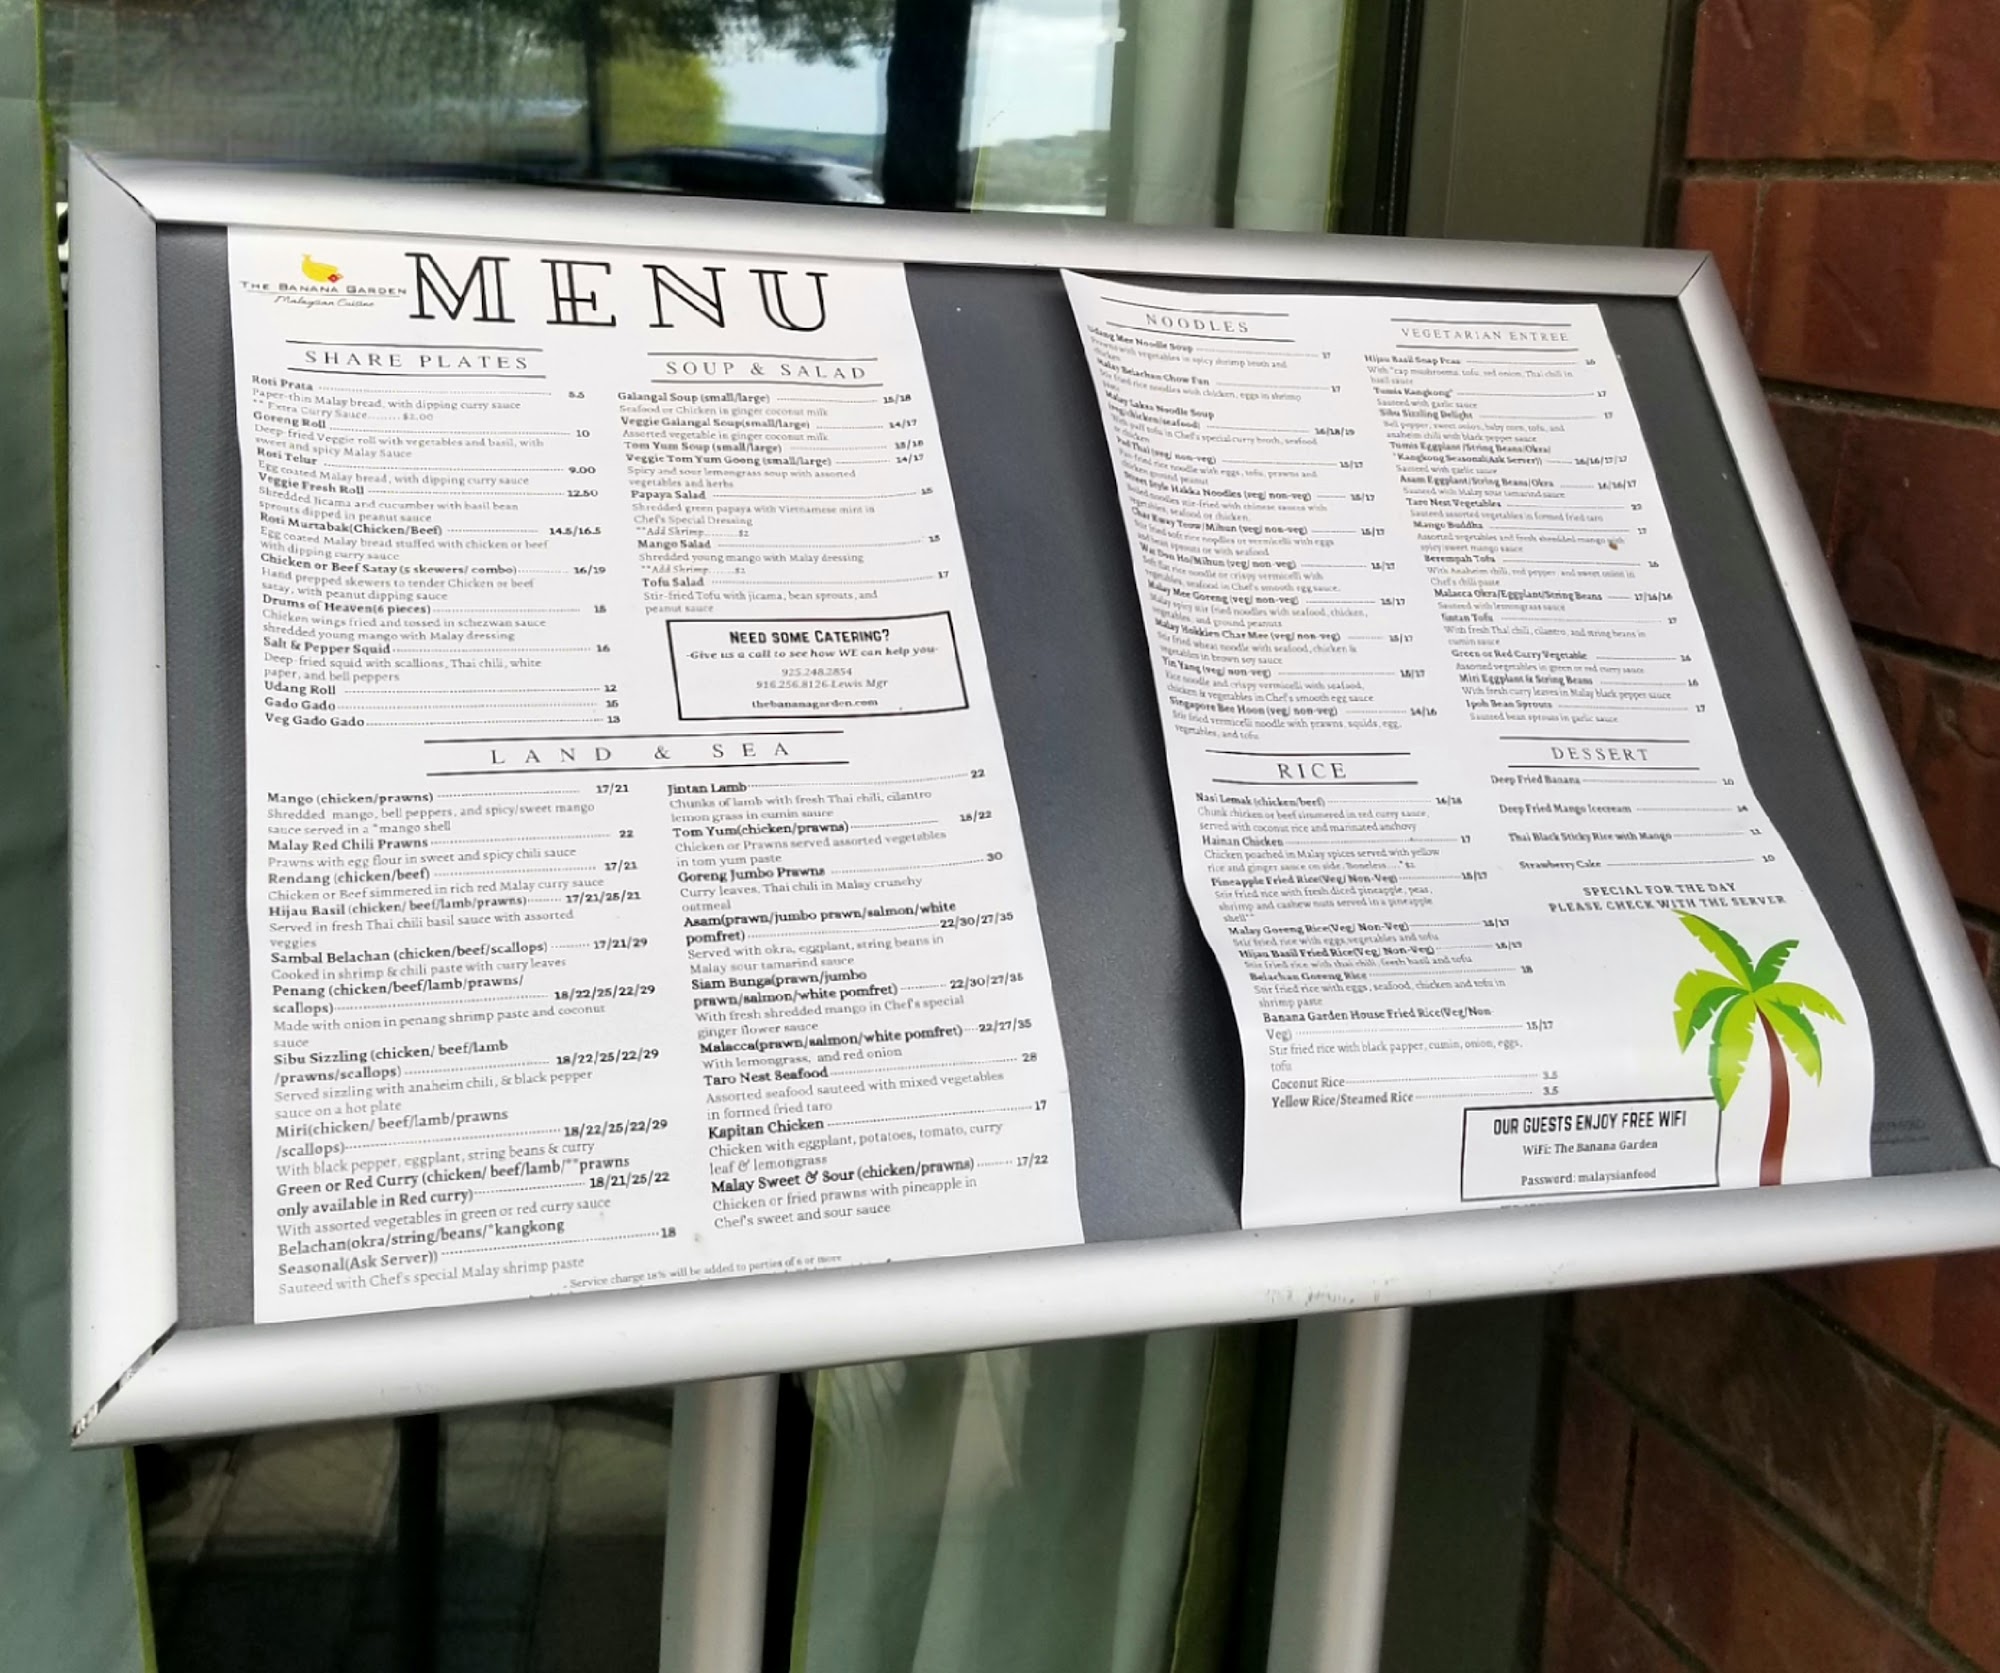 THE BANANA GARDEN
Malaysian Cuisine
MENU
SHARE PLATES
Roti Prata 5.5
Paper-thin Malay bread, with dipping curry sauce
** Extra Curry Sauce........ $2.00
Goreng Roll 10
Deep-fried Veggie roll with vegetables and basil, with
sweet and spicy Malay Sauce
Roti Telur 9.00
Egg coated Malay bread, with dipping curry sauce
Veggie Fresh Roll 12.50
Shredded Jicama and cucumber with basil bean
sprouts dipped in peanut sauce
Roti Murtabak(Chicken/Beef) 14.5/16.5
Egg coated Malay bread stuffed with chicken or beef
with dipping curry sauce
Chicken or Beef Satay (5 skewers/ combo) 16/19
Hand prepped skewers to tender Chicken or beef
satay, with peanut dipping sauce
Drums of Heaven(6 pieces) 15
Chicken wings fried and tossed in schezwan sauce
shredded young mango with Malay dressing
Salt & Pepper Squid 16
Deep-fried squid with scallions, Thai chili, white
paper, and bell peppers
Udang Roll 12
Gado Gado 15
Veg Gado Gado 13
SOUP & SALAD
Galangal Soup (small/large) 15/18
Seafood or Chicken in ginger coconut milk
Veggie Galangal Soup(small/large) 14/17
Assorted vegetable in ginger coconut milk
Tom Yum Soup (small/large) 15/18
Veggie Tom Yum Goong (small/large) 14/17
Spicy and sour lemongrass soup with assorted
vegetables and herbs
Papaya Salad 15
Shredded green papaya with Vietnamese mint in
Chef's Special Dressing
**Add Shrimp........$2
Mango Salad 15
Shredded young mango with Malay dressing
**Add Shrimp........$2
Tofu Salad 17
Stir-fried Tofu with jicama, bean sprouts, and
peanut sauce
NEED SOME CATERING?
-Give us a call to see how WE can help you-
925.248.2854
916.256.8126-Lewis Mgr
thebananagarden.com
LAND & SEA
Mango (chicken/prawns) 17/21
Shredded mango, bell peppers, and spicy/sweet mango
sauce served in a *mango shell
Malay Red Chili Prawns 22
Prawns with egg flour in sweet and spicy chili sauce
Rendang (chicken/beef) 17/21
Chicken or Beef simmered in rich red Malay curry sauce
Hijau Basil (chicken/ beef/lamb/prawns) 17/21/25/21
Served in fresh Thai chili basil sauce with assorted
veggies
Sambal Belachan (chicken/beef/scallops) 17/21/29
Cooked in shrimp & chili paste with curry leaves
Penang (chicken/beef/lamb/prawns/
scallops) 18/22/25/22/29
Made with onion in penang shrimp paste and coconut
sauce
Sibu Sizzling (chicken/ beef/lamb
/prawns/scallops) 18/22/25/22/29
Served sizzling with anaheim chili, & black pepper
sauce on a hot plate
Miri(chicken/ beef/lamb/prawns
/scallops) 18/22/25/22/29
With black pepper, eggplant, string beans & curry
Green or Red Curry (chicken/ beef/lamb/**prawns
only available in Red curry) 18/21/25/22
With assorted vegetables in green or red curry sauce
Belachan(okra/string/beans/*kangkong
Seasonal(Ask Server)) 18
Sauteed with Chef's special Malay shrimp paste
Jintan Lamb 22
Chunks of lamb with fresh Thai chili, cilantro
lemon grass in cumin sauce
Tom Yum(chicken/prawns) 18/22
Chicken or Prawns served assorted vegetables
in tom yum paste
Goreng Jumbo Prawns 30
Curry leaves, Thai chili in Malay crunchy
oatmeal
Asam(prawn/jumbo prawn/salmon/white
pomfret) 22/30/27/35
Served with okra, eggplant, string beans in
Malay sour tamarind sauce
Siam Bunga(prawn/jumbo
prawn/salmon/white pomfret) 22/30/27/35
With fresh shredded mango in Chef's special
ginger flower sauce
Malacca(prawn/salmon/white pomfret) 22/27/35
With lemongrass, and red onion
Taro Nest Seafood 28
Assorted seafood sauteed with mixed vegetables
in formed fried taro
Kapitan Chicken 17
Chicken with eggplant, potatoes, tomato, curry
leaf & lemongrass
Malay Sweet & Sour (chicken/prawns) 17/22
Chicken or fried prawns with pineapple in
Chef's sweet and sour sauce
- Service charge 18% will be added to parties of 6 or more
NOODLES
Udang Mee Noodle Soup 17
Prawns with vegetables in spicy shrimp broth and
chicken
Malay Belachan Chow Fun 17
Stir fried rice noodles with chicken, eggs in shrimp
Malay Laksa Noodle Soup
(veg/chicken/seafood) 16/18/19
With puff tofu in Chef's special curry broth, seafood
or chicken
Pad Thai (veg/ non-veg) 15/17
Pan fried rice noodle with eggs, tofu, prawns and
chicken ground peanut
Street Style Hakka Noodles (veg/ non-veg) 15/17
Boiled noodles stir-fried with chinese sauces with
vegetables, seafood or chicken.
Char Kway Teow/Mihun (veg/ non-veg) 15/17
Stir fried soft rice noodles or vermicelli with eggs
and bean sprouts or with seafood
Wat Don Ho/Mihun (veg/ non-veg) 15/17
Soft flat rice noodle or crispy vermicelli with
vegetables, seafood in Chef's smooth egg sauce.
Malay Mee Goreng (veg/ non-veg) 15/17
Malay spicy stir fried noodles with seafood, chicken,
vegetables, and ground peanuts
Malay Hokkien Char Mee (veg/ non-veg) 15/17
Stir fried wheat noodle with seafood, chicken &
vegetables in brown soy sauce
Yin Yang (veg/ non-veg) 15/17
Rice noodle and crispy vermicelli with seafood,
chicken & vegetables in Chef's smooth egg sauce
Singapore Bee Hoon (veg/ non-veg) 14/16
Stir fried vermicelli noodle with prawns, squids, egg,
vegetables, and tofu
RICE
Nasi Lemak (chicken/beef) 16/18
Chunk chicken or beef simmered in red curry sauce,
served with coconut rice and marinated anchovy
Hainan Chicken 17
Chicken poached in Malay spices served with yellow
rice and ginger sauce on side, Boneless....*$2
Pineapple Fried Rice(Veg/ Non-Veg) 15/17
Stir fried rice with fresh diced pineapple, peas,
shrimp and cashew nuts served in a pineapple
shell**
Malay Goreng Rice(Veg/ Non-Veg) 15/17
Stir fried rice with eggs,vegetables and tofu
Hijau Basil Fried Rice(Veg/ Non-Veg) 15/17
Stir fried rice with thai chili, fresh basil and tofu
Belachan Goreng Rice 18
Stir fried rice with eggs, seafood, chicken and tofu in
shrimp paste
Banana Garden House Fried Rice(Veg/Non-
Veg) 15/17
Stir fried rice with black papper, cumin, onion, eggs,
tofu
Coconut Rice 3.5
Yellow Rice/Steamed Rice 3.5
VEGETARIAN ENTREE
Hijau Basil Snap Peas 16
With *cap mushrooms, tofu, red onion, Thai chili in
basil sauce
Tumis Kangkong* 17
Sauteed with garlic sauce
Sibu Sizzling Delight 17
Bell pepper, sweet onion, baby corn, tofu, and
anaheim chili with black pepper sauce
Tumis Eggplant /String Beans/Okra/
*Kangkong Seasonal(Ask Server)) 16/16/17/17
Sauteed with garlic sauce
Asam Eggplant/String Beans/Okra 16/16/17
Sauteed with Malay sour tamarind sauce
Taro Nest Vegetables 22
Sauteed assorted vegetables in formed fried taro
Mango Buddha 17
Assorted vegetables and fresh shredded mango with
spicy/sweet mango sauce
Berempah Tofu 16
With Anaheim chili, red pepper, and sweet onion in
Chef's chili paste
Malacca Okra/Eggplant/String Beans 17/16/16
Sauteed with lemongrass sauce
Jintan Tofu 17
With fresh Thai chili, cilantro, and string beans in
cumin sauce
Green or Red Curry Vegetable 16
Assorted vegetables in green or red curry sauce
Miri Eggplant & String Beans 16
With fresh curry leaves in Malay black pepper sauce
Ipoh Bean Sprouts 17
Sauteed bean sprouts in garlic sauce
DESSERT
Deep Fried Banana 10
Deep Fried Mango Icecream 14
Thai Black Sticky Rice with Mango
Strawberry Cake 10
SPECIAL FOR THE DAY
PLEASE CHECK WITH THE SERVER
OUR GUESTS ENJOY FREE WIFI
WiFi: The Banana Garden
Password: malaysianfood